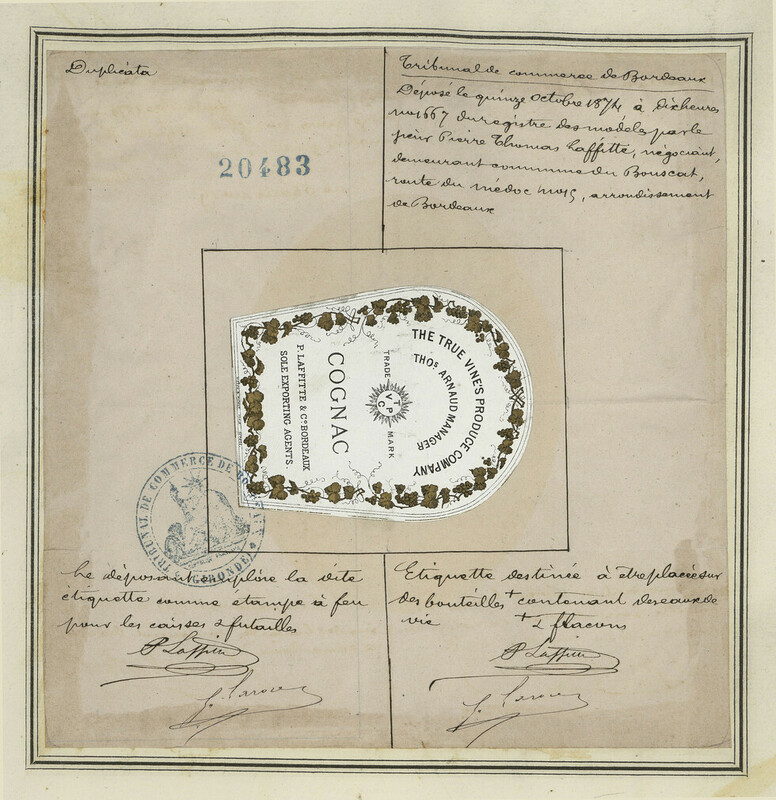 Duplicata
20483
Tribunal de commerce de Bordeaux
Déposé le quinze octobre 1874 à dix heures
no 1667 du registre des modèles par le
sieur Pierre Thomas Laffitte, négociant,
demeurant commune du Bouscat,
route du médoc no 15, arrondissement
de Bordeaux
THE TRUE VINE'S PRODUCE COMPANY
THOS ARNAUD MANAGER
TRADE MARK
V T P C
COGNAC
P. LAFFITTE & Co BORDEAUX
SOLE EXPORTING AGENTS.
TRIBUNAL DE COMMERCE DE BORDEAUX
(GIRONDE)
Le déposant emploie la dite
étiquette comme étampe à feu
pour les caisses & futailles
P Laffitte
Etiquette destinée à être placée sur
des bouteilles + contenant des eaux de
vie + & flacons
P Laffitte